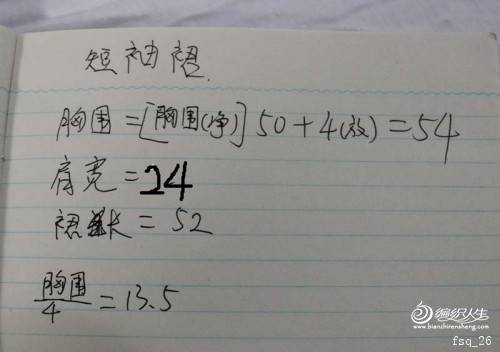 短袖裙.
胸围=[胸围(净)]50+4(放)=54
肩宽=24
裙长=52
胸围/4=13.5
编织人生
www.bianzhirensheng.com
fsq_26